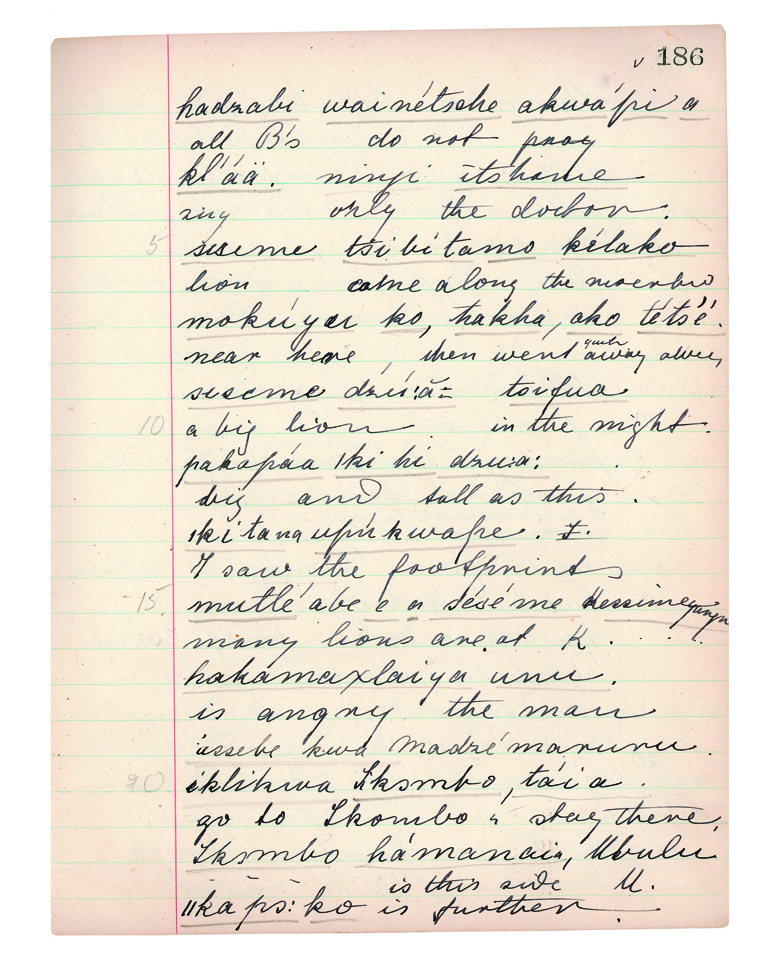 ✓ 186
hadzabi wainétsche akwápi a
all B's do not pray
kl'áä. ninji itshame
sing only the doctor.
5 seseme tsibitamo kélako
lion came along the riverbed
mokúyai ko, hakha, ako tétsé.
near here, then went away
seseme dzú:ā= tsifua
10 a big lion in the night.
pakapáa ıki hi dzu:a:
big and tall as this.
ıkitana upúkwape. I.
I saw the footprints
15. mutlé abe e a séséme
many lions are at K.
hakamaxlaiya unu.
is angry the man
assebe kwa Madzémaruru.
20 éklikwa Ikombo, táia.
go to Ikombo & stay there.
Ikombo hámanaia, Mbulu
is this side M.
ǁkā pš: ko is further